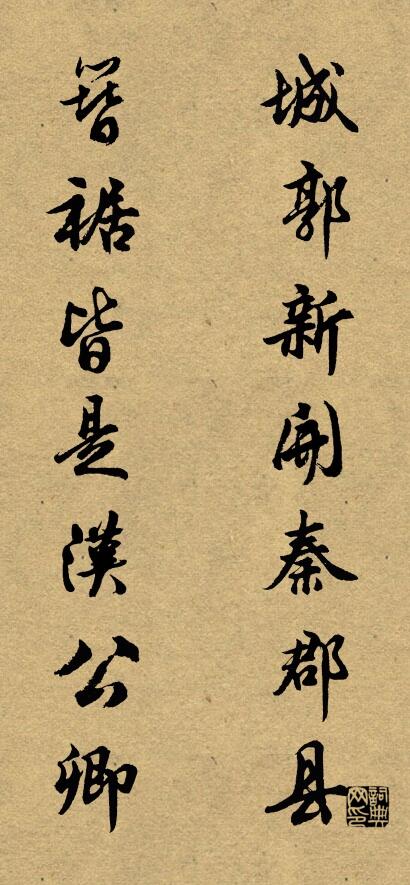 城郭新開秦郡县
簪裾皆是漢公卿
詞典网印